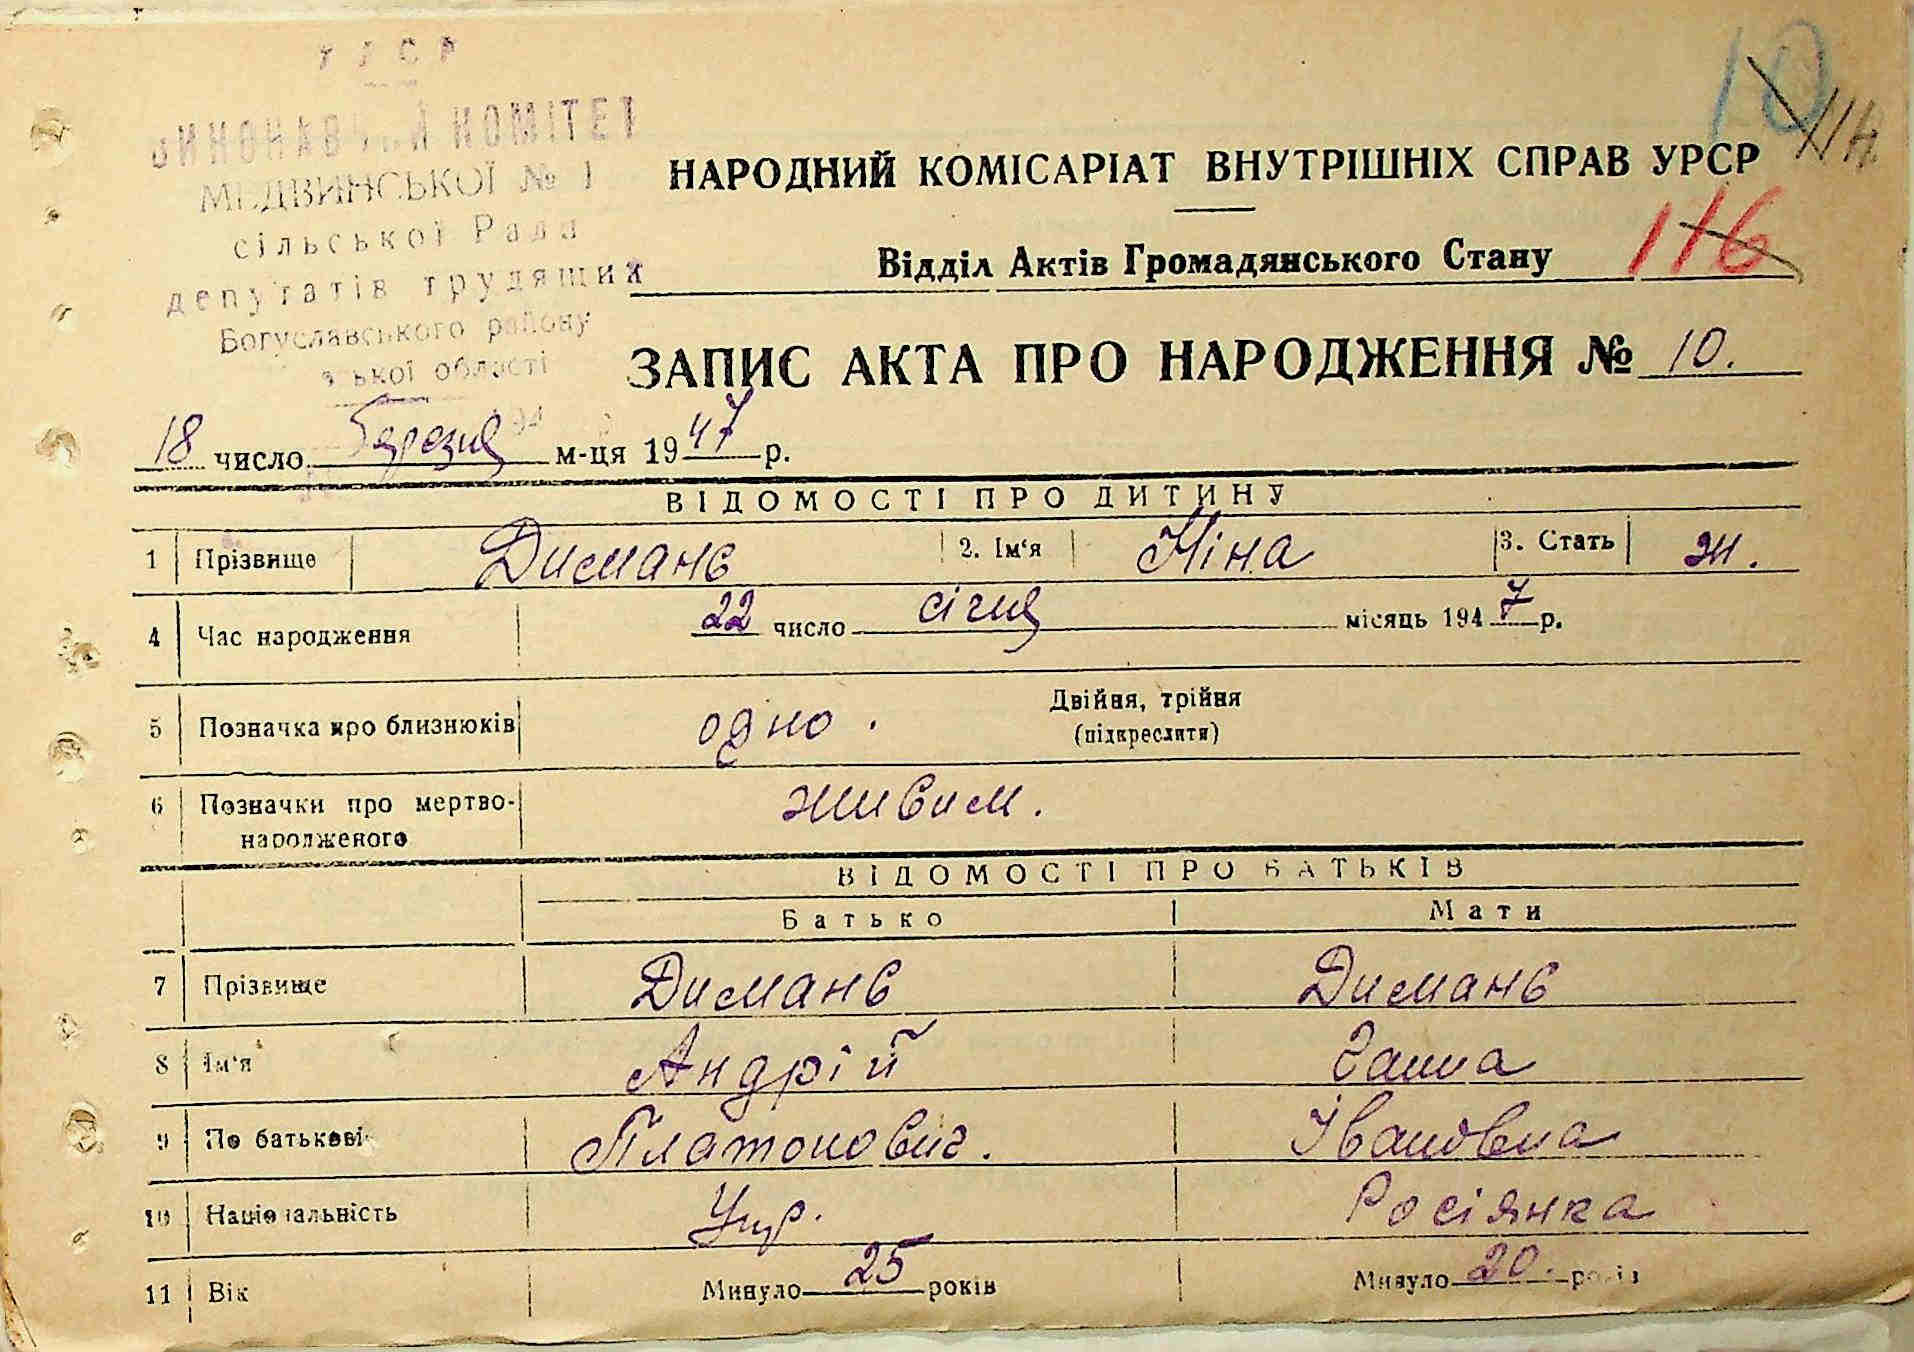 УРСР
ВИКОНАВЧИЙ КОМІТЕТ
МЕДВИНСЬКОЇ № 1
сільської Ради
депутатів трудящих
Богуславського району
ської області
10
НАРОДНИЙ КОМІСАРІАТ ВНУТРІШНІХ СПРАВ УРСР
Відділ Актів Громадянського Стану 116
ЗАПИС АКТА ПРО НАРОДЖЕННЯ № 10.
18 число березня м-ця 1947 р.
ВІДОМОСТІ ПРО ДИТИНУ
1 Прізвище Димань 2. Ім'я Ніна 3. Стать ж.
4 Час народження 22 число січня місяць 1947 р.
5 Позначка про близнюків одно. Двійня, трійня
(підкреслити)
6 Позначки про мертво- живим.
народженого
ВІДОМОСТІ ПРО БАТЬКІВ
Батько Мати
7 Прізвище Димань Димань
8 Ім'я Андрій Ганна
9 По батькові Платонович. Івановна
10 Національність Укр. Росіянка
11 Вік Минуло 25 років Минуло 20. років